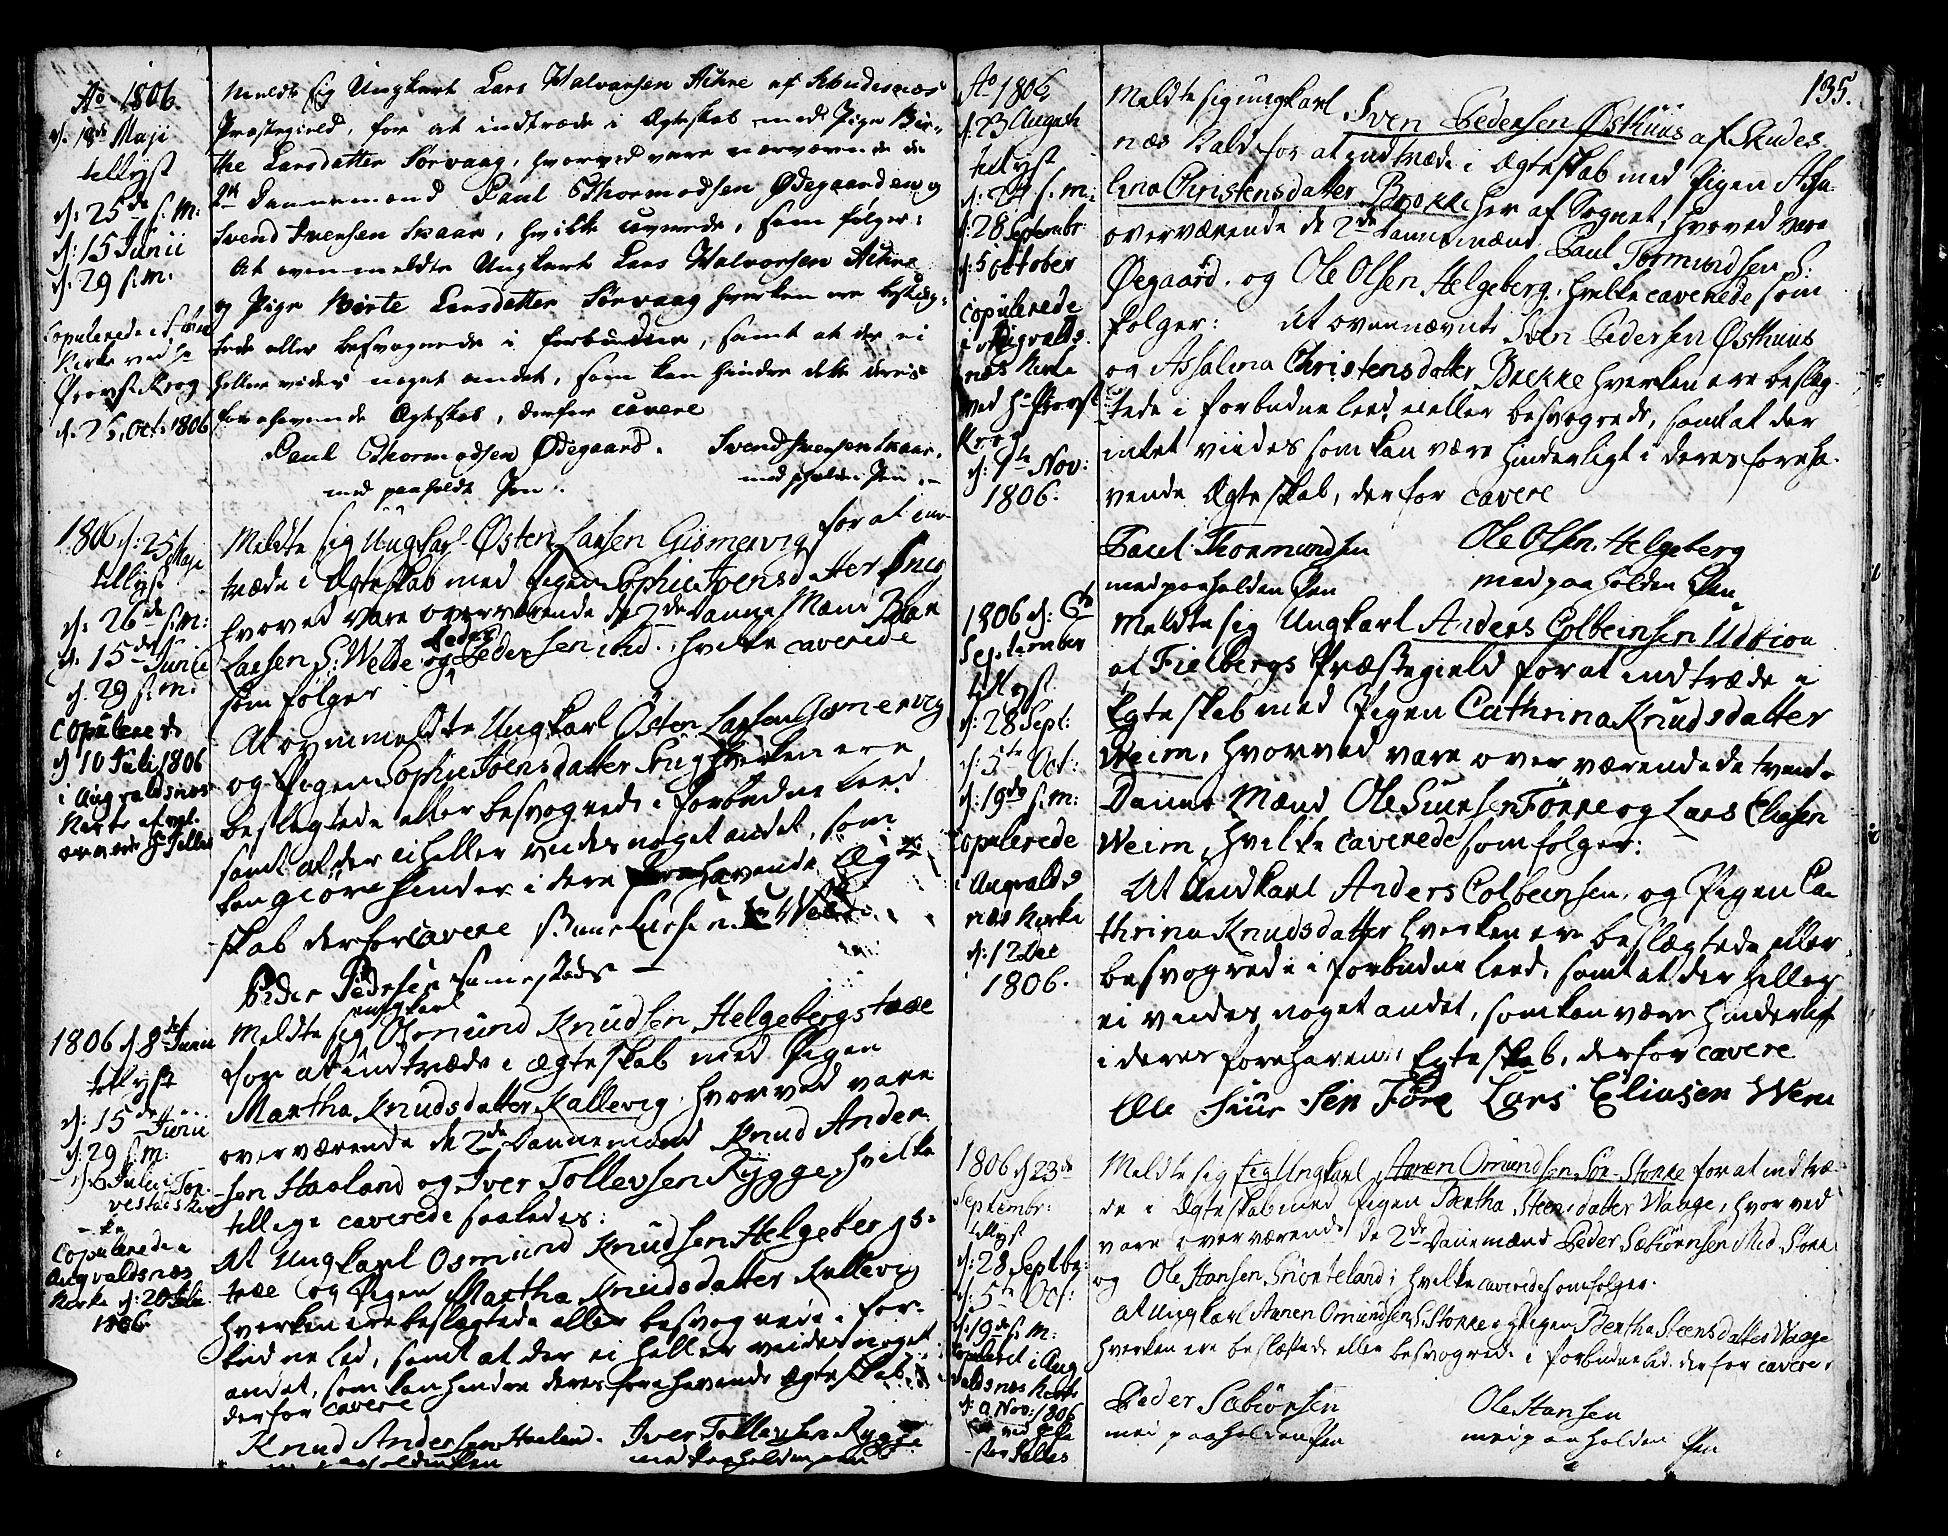 Ao 1806
d. 18de Maji
tillyst
d: 25de s: M:
d: 15 Junii
d: 29 s: m:
Copulerede i
Kirke ved Hr
Provst Krog
d: 26 Oct: 1806
Meldte sig Ungkarl Lars Halvorsen Achre af Schudesnæs
Præstegield, for at indtræde i Ægteskab med Pige Bir-
the Larsdatter Sørvaag, hvorved vare nærværende de
2de Dannemænd Paul Thormodsen Ødegaarden og
Svend Iversen Skaar, hvilke caverede, som følger:
At oven meldte Ungkarl Lars Halvorsen Achre
og Pige Birte Larsdatter Sørvaag hverken ere beslæg-
tede eller besvogrede i forbudne, samt at der ei
heller vides noget andet, som kan hindre dette deres
forehavende Ægteskab, derfor cavere
Paul Thormodsen Ødegaard. Svend Iversen Skaar,
med paaholdt Pen. med paaholden Pen
1806 d: 25 Maji
tillyst
d: 26de s: m:
d: 15de Junii
d: 29 s: m:
Copulerede
d 10 Juli 1806
i Augvaldsnæs
Kirke af
Hr Selles
Meldte sig Ungkarl Østen Larsen Gismervig for at ind-
træde i Ægteskab med Pigen Sophie Joensdatter Snig
hvorved vare overværende de 2de Danne Mænd
Larsen S: Welde og Peder Pedersen ibd. hvilke caverede
som følger
At ovenmeldte Ungkarl Østen Larsen Gismervig
og Pigen Sophie Joensdatter Snig hverken ere
beslegtede eller besvogrede i forbudne Leed
samt at der ei heller vides noget andet, som
kan giøre hinder i dere forehavende Æg-
skab derfor cavere Larsen S: Welde
Peder Pedersen samestads
1806 d 8de Junii
tillyst
d: 15de Junii
d: 29 s: m:
d: 6 Juli i Tor-
vestad Kir-
ke
Copulerede i
Augvaldsnæs
Kirke d: 20 Julii
1806
Meldte sig ungkarl Osmund Knudsen Helgebergstræe
for at indtræde i Ægteskab med Pigen
Martha Knudsdatter Kallevig, hvorved vare
overværende de 2de Dannemænd Knud Ander-
sen Haaland og Iver Tollevsen Rygge, hvilke
tellige caverede saaledes:
At Ungkarl Osmund Knudsen Helgebergs-
træe og Pigen Martha Knudsdatter Kallevig
hverken ere beslegtede eller besvogrede i for-
budne led, samt at der ei heller veides noget
andet, som kan hendre deres forehavende Ægteskab
derfor cavere
Knud Andersen Haaland. Iver Tollevsen Rygge
paaholden Pen med Paaholden Pen
Ao 1806
d. 23 August
tillyst
d: 24 s: m:
d: 28 September
d: 5 October
Copulerede
i Augvalds-
næs Kirke
ved Hr Provst
Krog
d: 9de Nov:
1806.
135.
Meldte sig ungkarl Sven Pedersen Østhuus af Skudes-
næs Kald for at indtræde i Ægteskab med Pigen Assa-
lina Christensdatter Brekke her af Sognet, hvorved vare
overværende de 2de Dannemænd Paul Tormundsen S:
Øegaard. og Ole Olsen Helgeberg, hvilke caverede som
følger: At ovennævnte Sven Pedersen Østhuus
og Assalina Christensdatter Brekke hverken ere beslæg-
tede i forbudne leed, ei eller besvogrede, samt at der
intet viides som kan være hinderligt i deres foreha-
vende Ægteskab, derfor cavere
Paul Thormundsen Ole Olsen Helgeberg
med paaholden Pen med paaholden Pen
1806 d: 6te
September
tillyst
d: 28 Sept:
d: 5te Oct:
d: 19de s: m:
Copulerede
i Augvalds
næs Kirke
d: 12 Dec
1806.
Meldte sig Ungkarl Anders Colbeinsen Udøien
af Fielbergs Præstegield for at indtræde i
Egteskab med Pigen Cathrina Knudsdatter
Weim, hvorved vare over værende de tvende
Danne Mænd Ole Siursen Førre og Lars Eliasen
Weim, hvilke caverede som følger:
At Undkarl Anders Colbeinsen, og Pigen Ca-
thrina Knudsdatter hverken ere beslægtede eller
besvogrede i forbudne leed, samt at der heller
ei vides noget andet, som kan være hinderligt
i deres forehavende Egteskab, derfor cavere
Ole Siursen Føre Lars Eliasen Wem
1806 d 23de
Septembr:
tillyst
d: 28 Septbr:
d: 5te Oct:
d: 19de s: m:
Copuleret i Aug
valdsnæs Kirke
d: 9 Nov: 1806
ved Hr Pa-
stor Selles
Meldte sig sig Ungkarl Aanen Omundsen Sør-Stokke for at indtræ-
de i Ægteskab med Pigen Bertha Steensdatter Waage, hvorved
vare overværende de 2de Dannemænd Peder Sæbiørnsen Mid-Stokke
og Ole Hansen Sniorteland, hvilke caverede som følger.
at Ungkarl Aanen Omundsen S. Stokke og Pigen Bertha Steensdatter Waage
hverken ere beslægtede eller besvogrede i forbudne led. derfor cavere
Peder Sæbiørnsen Ole Hansen
med paaholden Pen med paaholden Pen